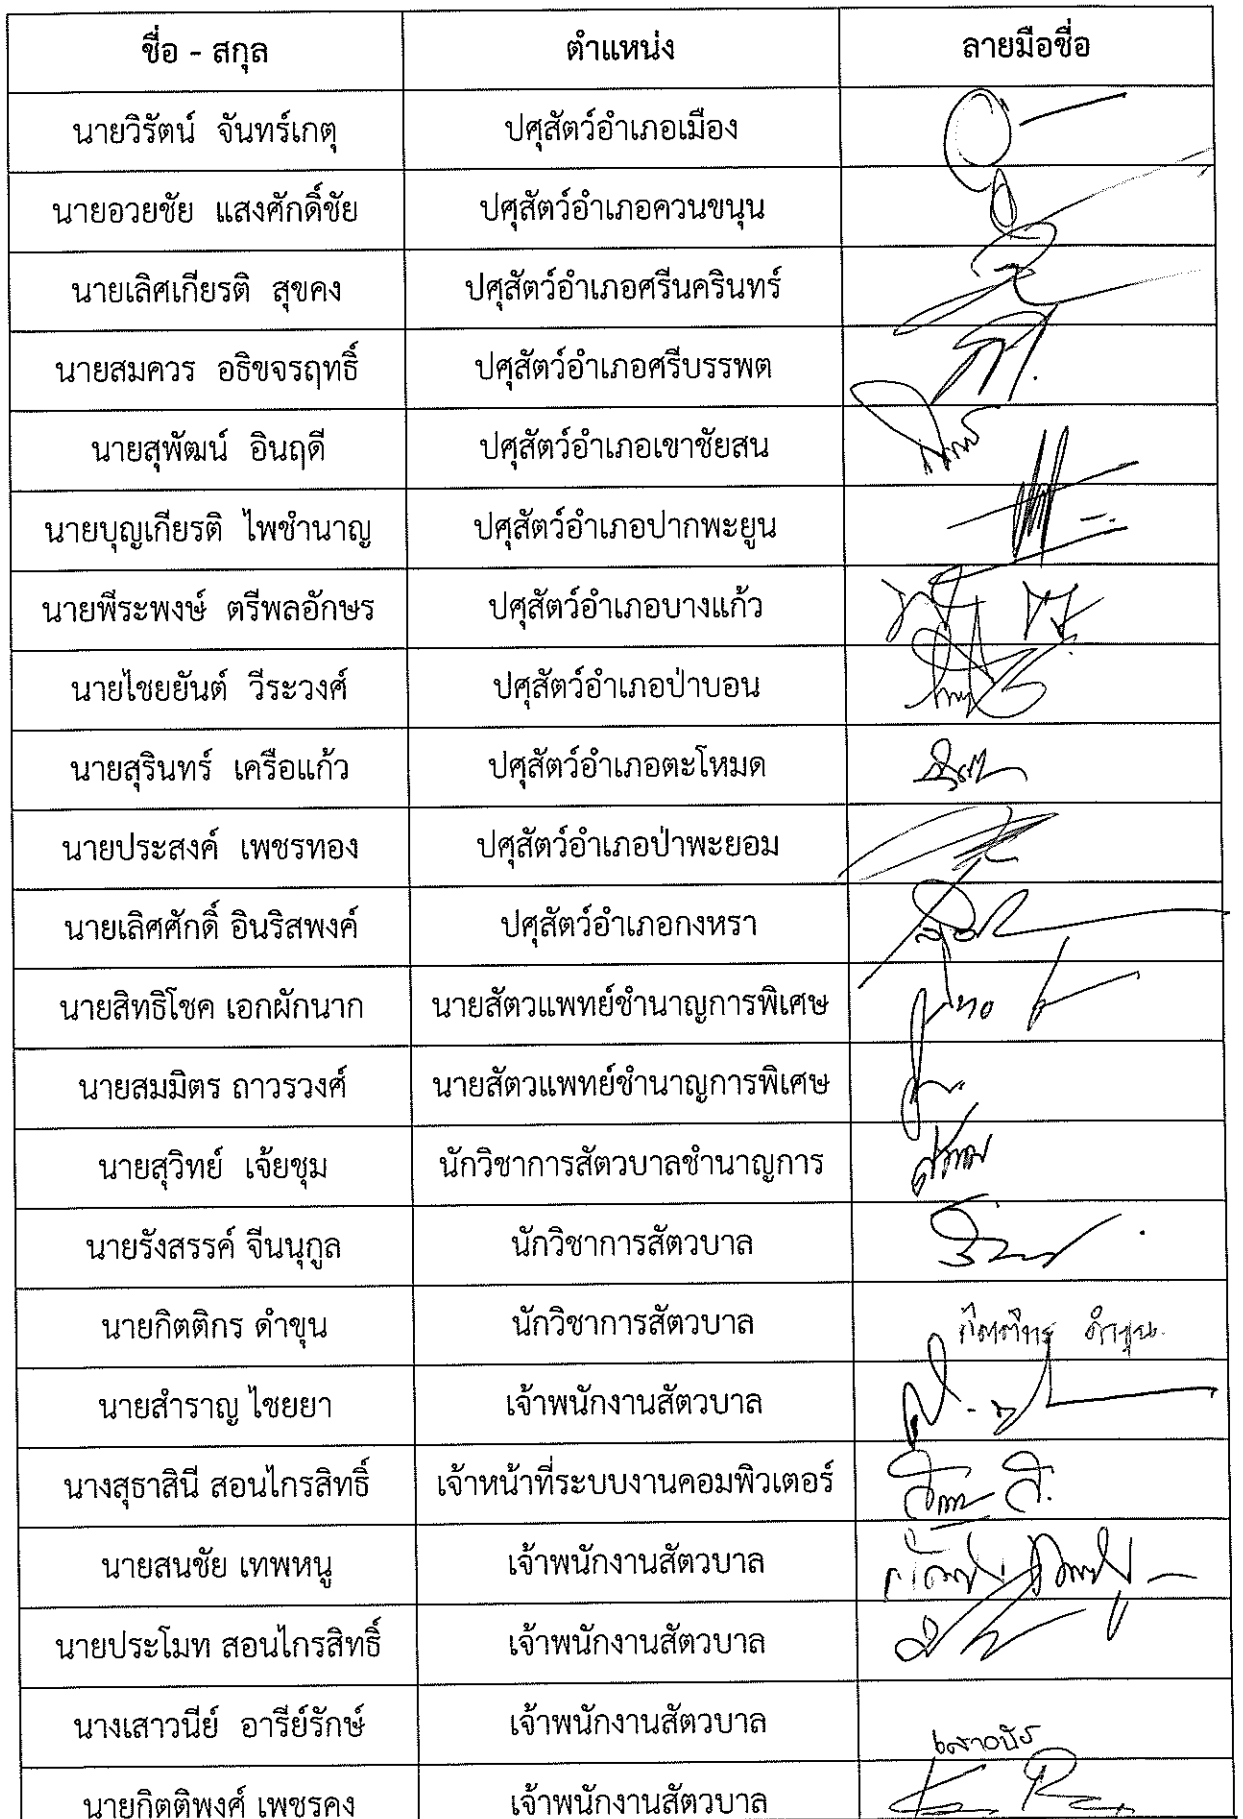 ชื่อ - สกุล ตำแหน่ง ลายมือชื่อ
นายวิรัตน์ จันทร์เกตุ ปศุสัตว์อำเภอเมือง
นายอวยชัย แสงศักดิ์ชัย ปศุสัตว์อำเภอควนขนุน
นายเลิศเกียรติ สุขคง ปศุสัตว์อำเภอศรีนครินทร์
นายสมควร อธิขจรฤทธิ์ ปศุสัตว์อำเภอศรีบรรพต
นายสุพัฒน์ อินฤดี ปศุสัตว์อำเภอเขาชัยสน
นายบุญเกียรติ ไพชำนาญ ปศุสัตว์อำเภอปากพะยูน
นายพีระพงษ์ ตรีพลอักษร ปศุสัตว์อำเภอบางแก้ว
นายไชยยันต์ วีระวงศ์ ปศุสัตว์อำเภอป่าบอน
นายสุรินทร์ เครือแก้ว ปศุสัตว์อำเภอตะโหมด
นายประสงค์ เพชรทอง ปศุสัตว์อำเภอป่าพะยอม
นายเลิศศักดิ์ อินริสพงค์ ปศุสัตว์อำเภอกงหรา
นายสิทธิโชค เอกผักนาก นายสัตวแพทย์ชำนาญการพิเศษ
นายสมมิตร ถาวรวงศ์ นายสัตวแพทย์ชำนาญการพิเศษ
นายสุวิทย์ เจ้ยชุม นักวิชาการสัตวบาลชำนาญการ
นายรังสรรค์ จีนนุกูล นักวิชาการสัตวบาล
นายกิตติกร ดำขุน นักวิชาการสัตวบาล กิตติกร ดำขุน
นายสำราญ ไชยยา เจ้าพนักงานสัตวบาล
นางสุธาสินี สอนไกรสิทธิ์ เจ้าหน้าที่ระบบงานคอมพิวเตอร์
นายสนชัย เทพหนู เจ้าพนักงานสัตวบาล
นายประโมท สอนไกรสิทธิ์ เจ้าพนักงานสัตวบาล
นางเสาวนีย์ อารีย์รักษ์ เจ้าพนักงานสัตวบาล เสาวนีย์
นายกิตติพงศ์ เพชรคง เจ้าพนักงานสัตวบาล